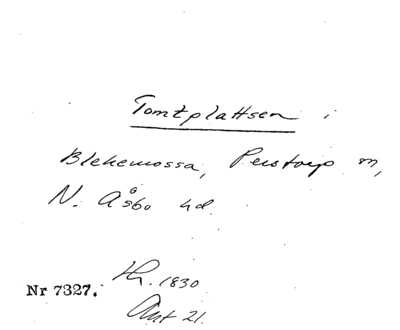 Tomtplattsen i
Blekemossa, Perstorp sn,
N. Åsbo hd.
Nr 7327.
1830
Ant 21.